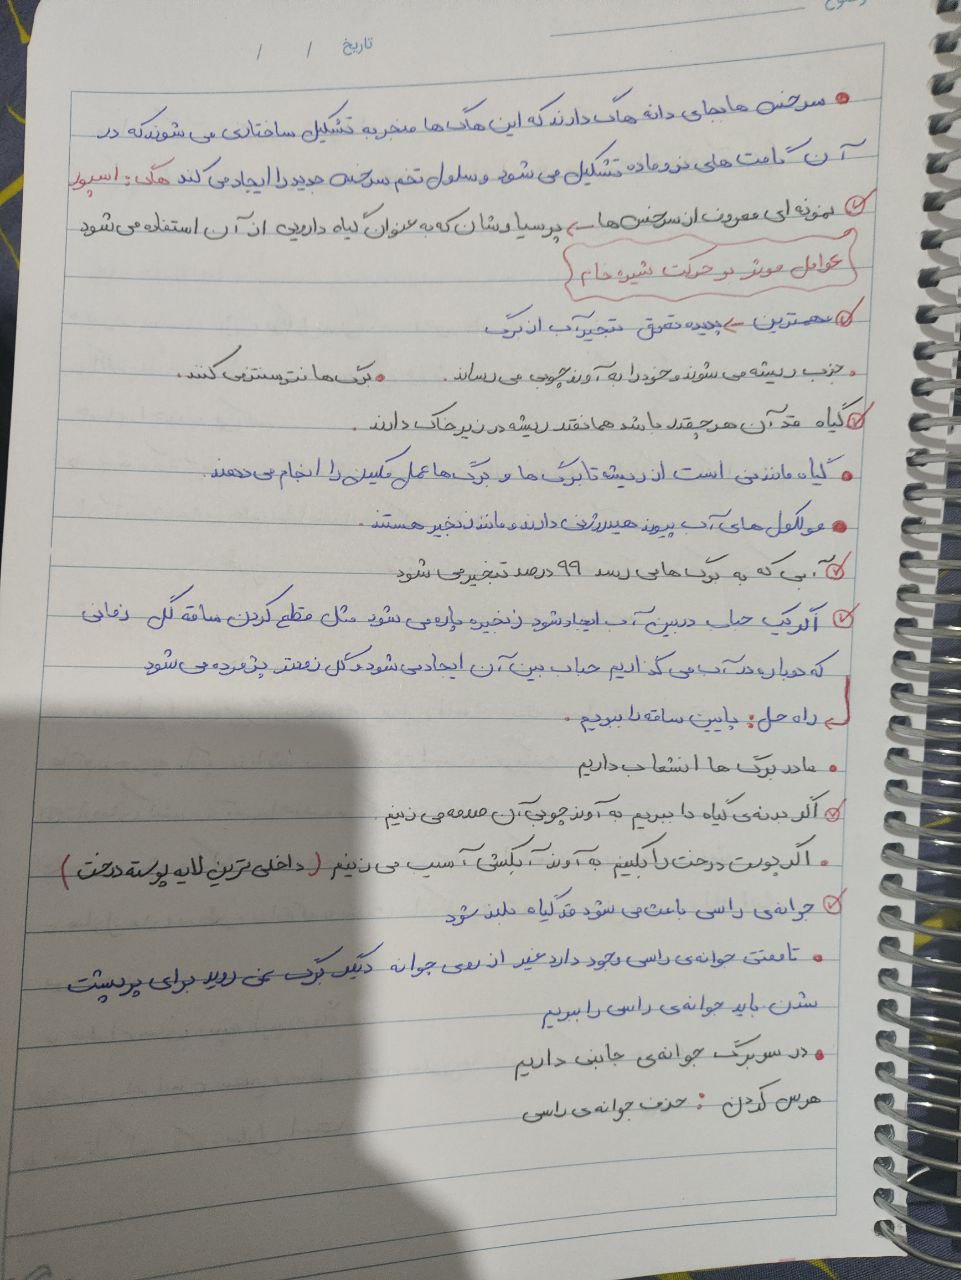 تاریخ / /
• سرخس ها بجای دانه هاگ دارند که این هاگ ها منجر به تشکیل ساختاری می شوند که در
آن گامت های نر و ماده تشکیل می شود و سلول تخم سرخس جدید را ایجاد می کند هاگ: اسپور
نمونه ای معروف از سرخس ها ← پرسیاوشان که به عنوان گیاه دارویی از آن استفاده می شود
عوامل موثر بر حرکت شیره خام
مهمترین ← پدیده تعرق تبخیر آب از برگ
• جزب ریشه می شوند و خود را به آوند چوبی می رساند. • برگ ها فتوسنتز می کنند.
گیاه قد آن هر چقدر باشد همانقدر ریشه در زیر خاک دارند.
• گیاه مانند نی است از ریشه تا برگ ها و برگ ها عمل مکیدن را انجام می دهند.
• مولکول های آب پیوند هیدرژنی دارند و مانند زنجیر هستند.
آبی که به برگ ها می رسد ۹۹ درصد تبخیر می شود
اگر یک حباب در بین آب ایجاد شود زنجیره پاره می شود مثل قطع کردن ساقه گل زمانی
که دوباره در آب می گذاریم حباب بین آن ایجاد می شود و گل زودتر پژمرده می شود
راه حل: پایین ساقه را ببریم.
• ما در برگ ها انشعاب داریم
اگر بدنه ی گیاه را ببریم به آوند چوبی آن صدمه می زنیم.
• اگر پوست درخت را بکنیم به آوند آبکشی آسیب می زنیم (داخلی ترین لایه پوسته درخت)
جوانه ی راسی باعث می شود قد گیاه بلند شود
• تا وقتی جوانه ی راسی وجود دارد غیر از روی جوانه دیگر برگ نمی روید برای پرپشت
شدن باید جوانه ی راسی را ببریم
• در سر برگ جوانه ی جانبی داریم
هرس کردن : حذف جوانه ی راسی